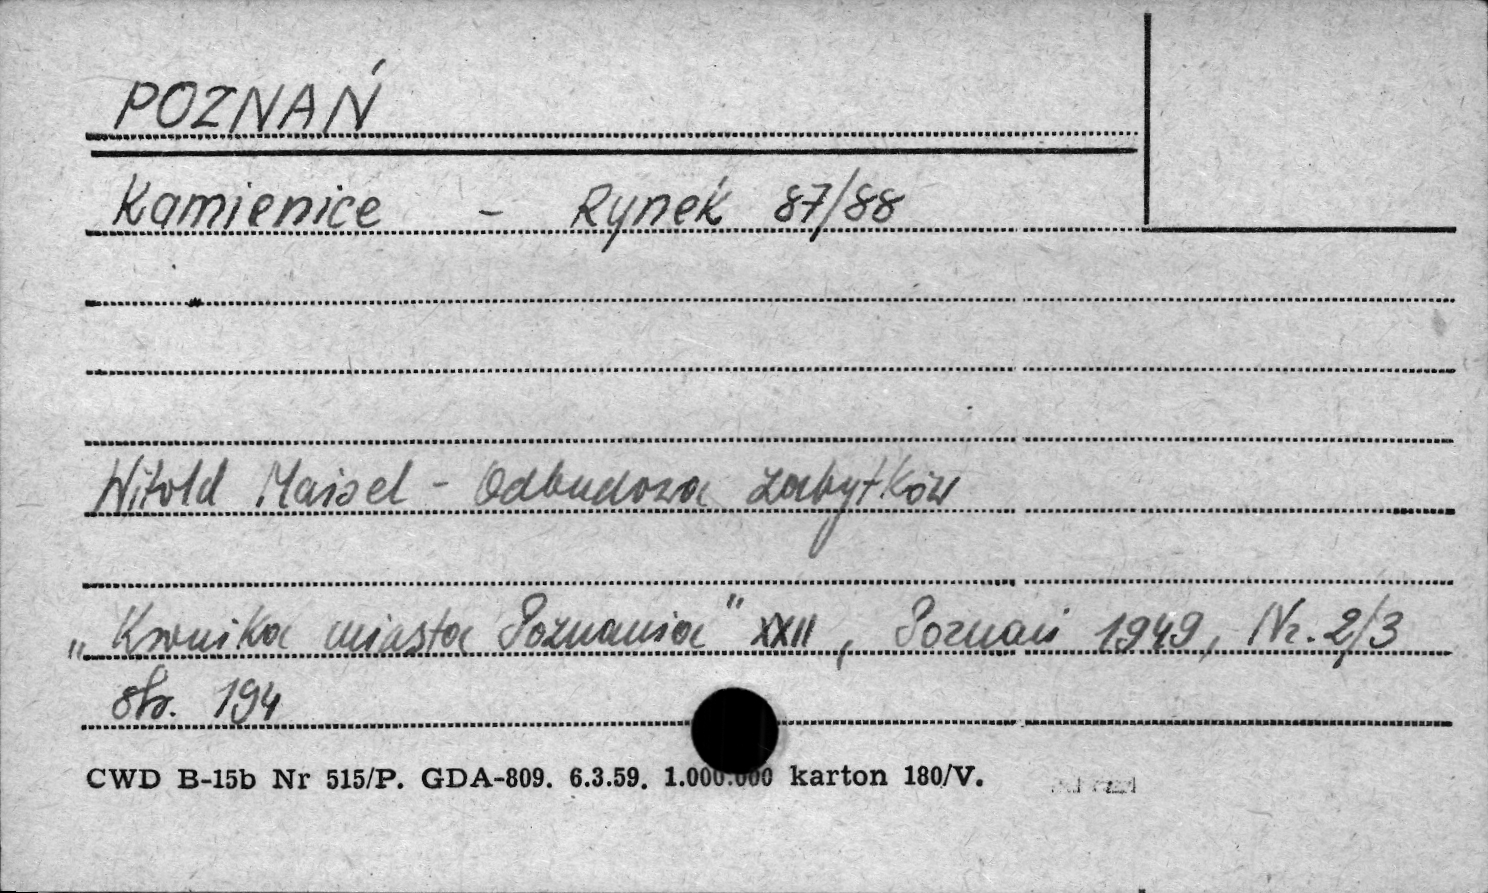 POZNAŃ
Kamienice - Rynek 87/88
Witold Maisel - Odbudowa zabytków
„Kronika miasta Poznania" XXII, Poznań 1949, Nr. 2/3
str. 194
CWD B-15b Nr 515/P. GDA-809. 6.3.59. 1.000.000 karton 180/V.